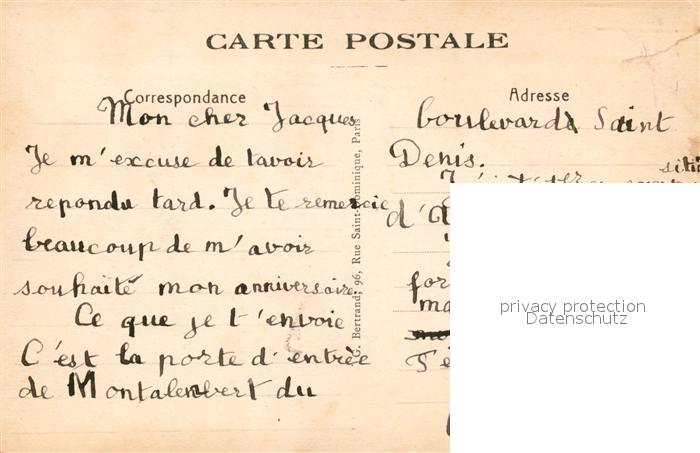 CARTE POSTALE
Correspondance
Mon cher Jacques
Je m'excuse de tavoir
repondu tard. Je te remercie
beaucoup de m'avoir
souhaité mon anniversaire.
Ce que je t'envoie
C'est la porte d'entrée
de Montalembert du
G. Bertrand, 96, Rue Saint-Dominique, Paris
Adresse
boulevard Saint
Denis.
d'a
for
ma
privacy protection
Datenschutz